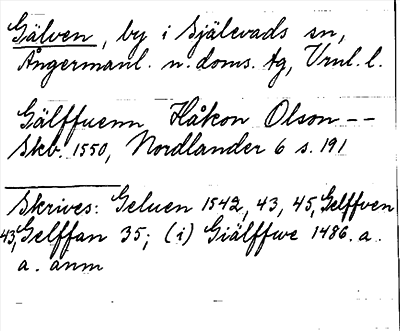 Gälven, by i Själevads sn,
Ångermanl. n. doms. tg, Vrnl. l.
Gälffuenn Håkon Olson --
Skb. 1550, Nordlander 6 s. 191
Skrives: Geluen 1542, 43, 45, Gelffven
43, Gelffan 35; (i) Giälffwe 1486. a.
a. anm